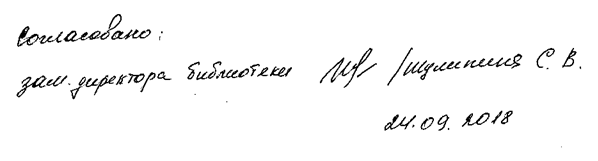 Согласовано:
зам. директора библиотеки /Шулипина С. В.
24.09.2018